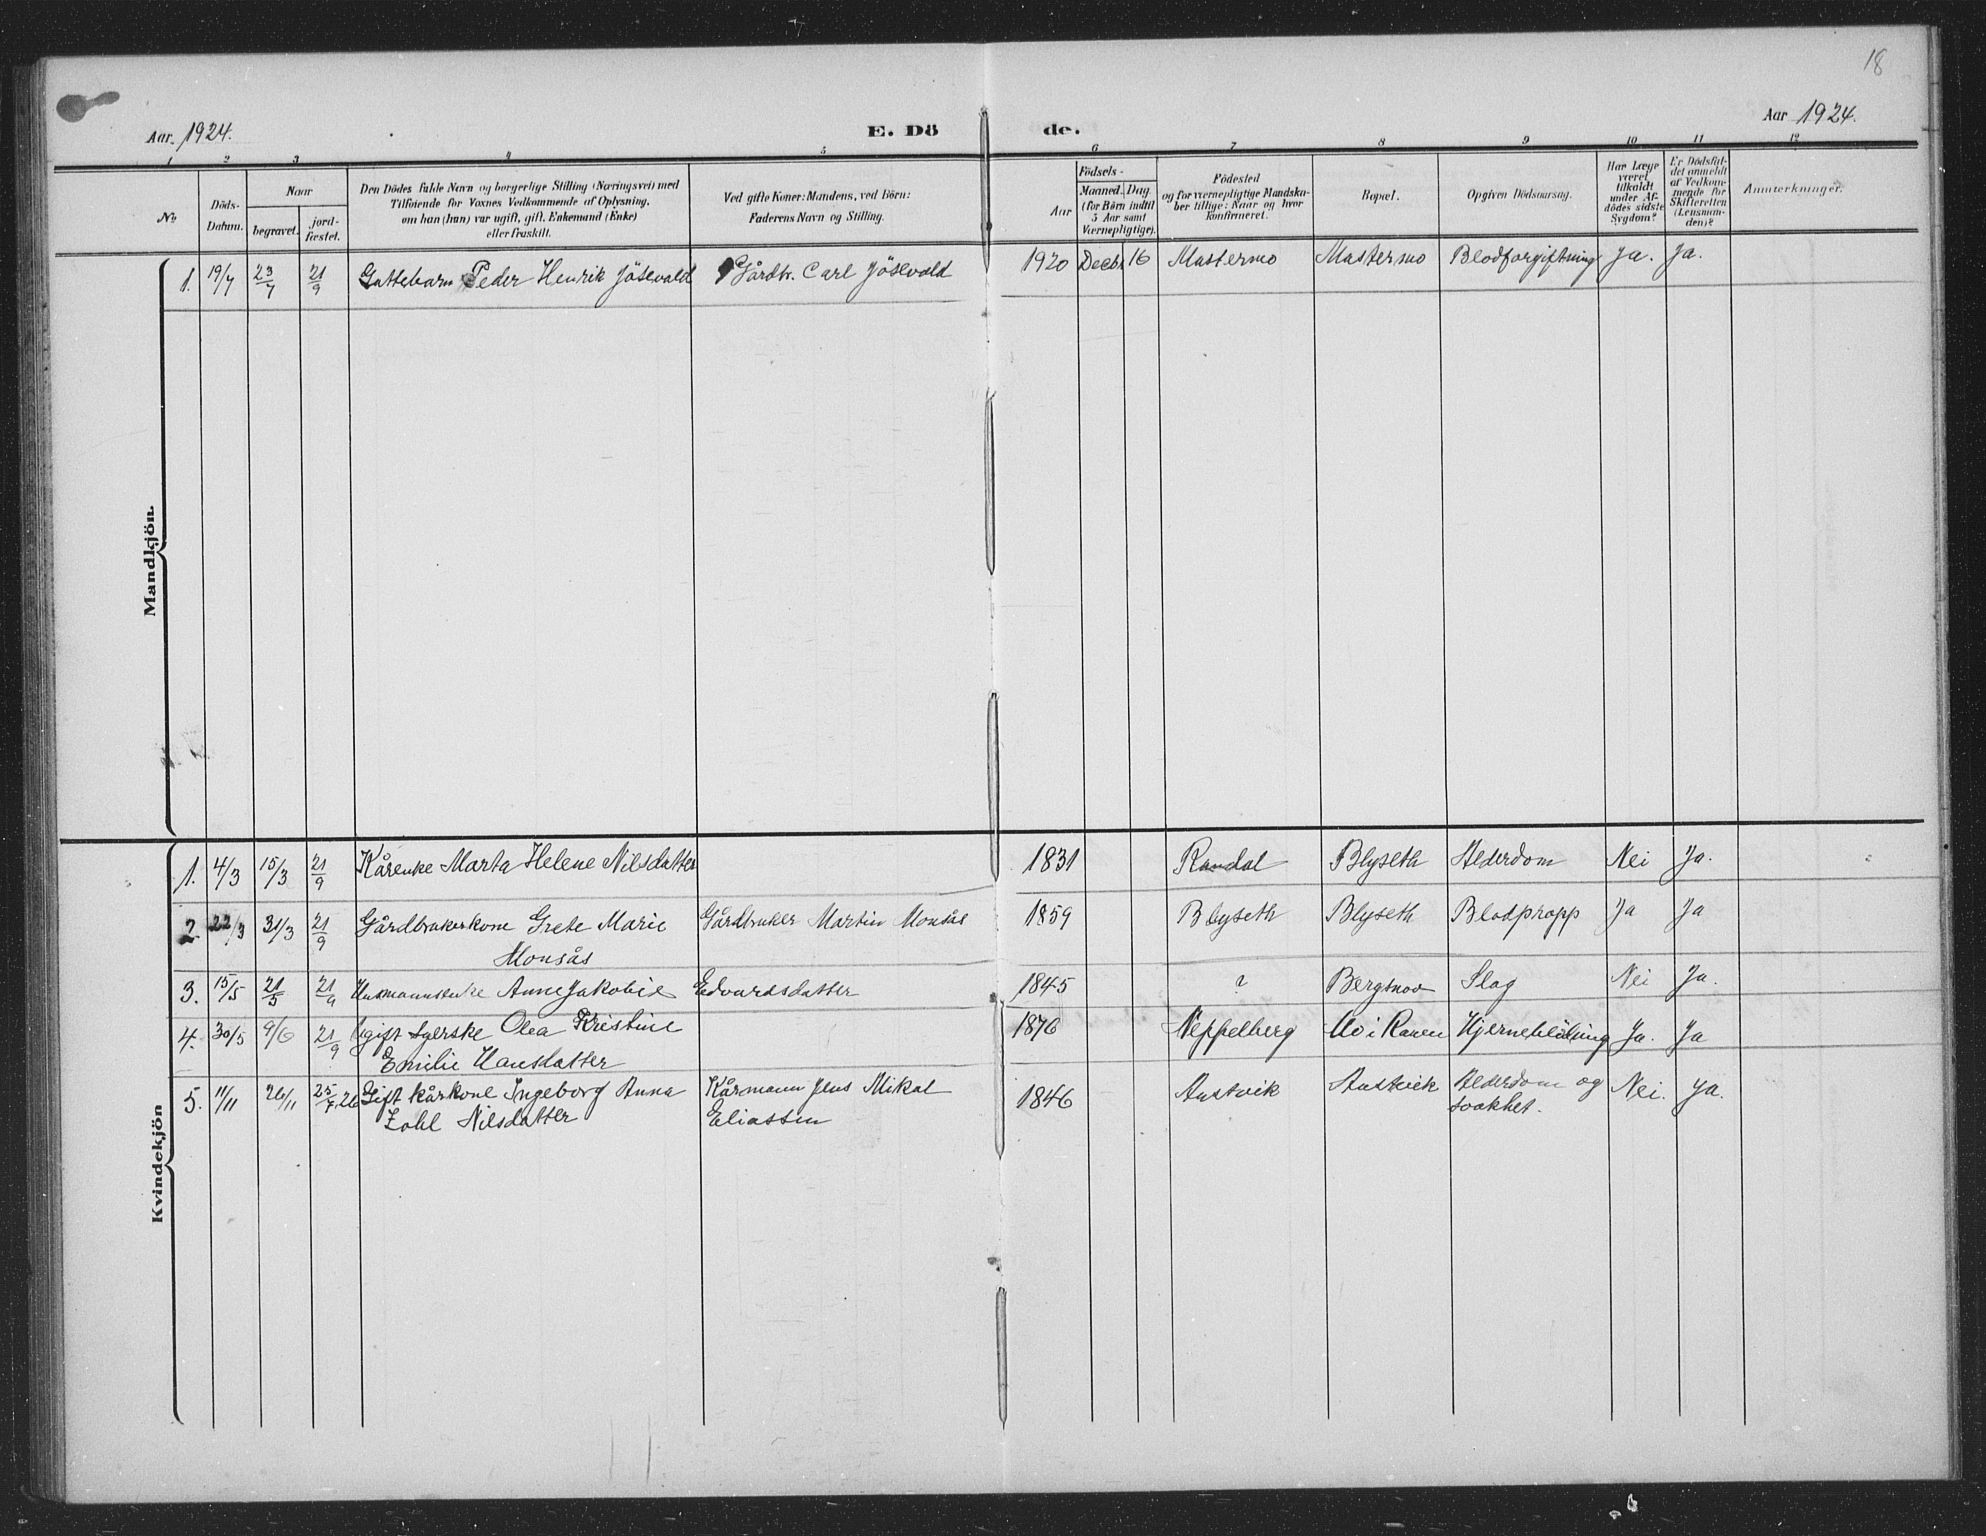 18
Aar 1924.
E. Dö
de.
Aar 1924.
1 2 3 4 5 6 7 8 9 10 11 12
No.
Döds-
Datum.
Naar
begravet.
jord-
fæstet.
Den Dödes fulde Navn og borgerlige Stilling (Næringsvei) med
Tilföiende for Voxnes Vedkommende af Oplysning,
om han (hun) var ugift, gift, Enkemand (Enke)
eller fraskilt.
Ved gifte Koner: Mandens, ved Börn:
Faderens Navn og Stilling.
Födsels-
Aar
Maaned. Dag.
(for Börn indtil
5 Aar samt
Værnepligtige).
Födested
og for værnepligtige Mandska-
ber tillige: Naar og hvor
konfirmeret.
Bopæl.
Opgiven Dödsaarsag.
Har Læge
været
tilkaldt
under Af-
dödes sidste
Sygdom?
Er Dödsfal-
det anmeldt
af Vedkom-
mende for
Skifteretten
(Lensman-
den)?
Anmerkninger.
Mandkjön.
1. 19/7 23/7 21/9 Guttebarn Peder Henrik Jösevold Gårdbr. Carl Jösevold 1920 Decbr 16 Mastermo Mastermo Blodforgiftning Ja. Ja.
Kvindekjön
1. 4/3 15/3 21/9 Kårenke Marta Helene Nilsdatter 1831 Randal Blyseth Alderdom Nei Ja.
2. 22/3 31/3 21/9 Gårdbrukerkone Grete Marie Gårdbruker Martin Monsås 1859 Blyseth Blyseth Blodpropp Ja Ja
Monsås
3. 15/5 21/5 21/9 Husmannsenke Anne Jakobie Edvardsdatter 1845 ? Bergsnov Slag Nei Ja.
4. 30/5 9/6 21/9 Ugift Syerske Olea Kristine 1876 Neppelberg Mo i Ranen Hjerneblödning Ja. Ja
Emilie Hansdatter
5. 11/11 26/11 25/7.26 Gift kårkone Ingeborg Anna Kårmann Jens Mikal 1846 Austvik Austvik Alderdom og Nei. Ja.
Zahl Nilsdatter Eliassen svakhet.